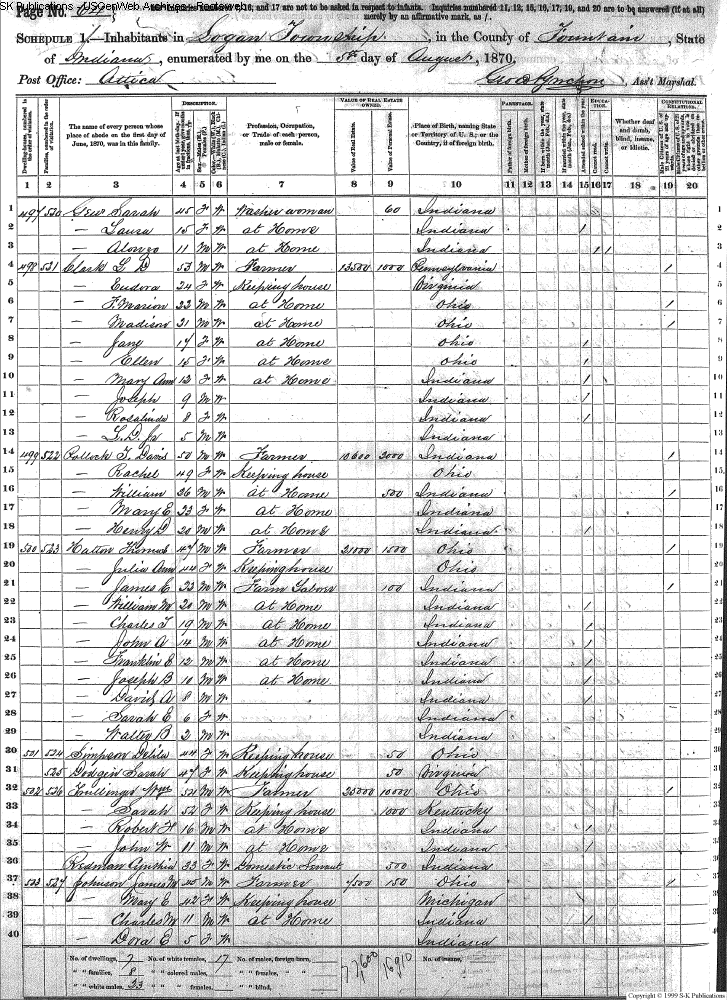 SK Publications - USGenWeb Archives - Rootsweb
Page No. 64
and 17 are not to be asked in respect to infants. Inquiries numbered 11, 12, 15, 16, 17, 19, and 20 are to be answered (if at all)
merely by an affirmative mark, as /.
SCHEDULE 1.—Inhabitants in Logan Township, in the County of Fountain, State
of Indiana, enumerated by me on the 5th day of August, 1870.
Post Office: Attica Ass't Marshal.
DESCRIPTION. VALUE OF REAL ESTATE OWNED. PARENTAGE. EDUCATION. CONSTITUTIONAL RELATIONS.
The name of every person whose place of abode on the first day of June, 1870, was in this family.
Profession, Occupation, or Trade of each person, male or female.
Value of Real Estate. Value of Personal Estate.
Place of Birth, naming State or Territory of U. S.; or the Country, if of foreign birth.
Whether deaf and dumb, blind, insane, or idiotic.
1 2 3 4 5 6 7 8 9 10 11 12 13 14 15 16 17 18 19 20
1 497 520 Sarah 45 F W Washer woman 60 Indiana 1
2 — Laura 15 F W at Home Indiana / 2
3 — Alonzo 11 M W at Home Indiana / / 3
4 498 521 Clark L D 53 M W Farmer 13500 1000 Pennsylvania / 4
5 — Eudora 24 F W Keeping house Virginia 5
6 — F. Marion 23 M W at Home Ohio / 6
7 — Madison 21 M W at Home Ohio / 7
8 — Jany 17 F W at Home Ohio / 8
9 — Ellen 15 F W at Home Ohio / 9
10 — Mary Ann 12 F W at Home Indiana / 10
11 — Joseph 9 M W Indiana / 11
12 — Rosalinda 8 F W Indiana / 12
13 — L. D. Jr 5 M W Indiana 13
14 499 522 Pollock T. Davis 50 M W Farmer 10600 3000 Indiana / 14
15 — Rachel 49 F W Keeping house Ohio 15
16 — William 26 M W at Home 500 Indiana / 16
17 — Mary E 23 F W at Home Indiana 17
18 — Henry D 20 M W at Home Indiana / 18
19 500 523 Hatton Thomas 47 M W Farmer 21000 1500 Ohio / 19
20 — Julia Ann 44 F W Keeping house Ohio 20
21 — James E 22 M W Farm Labour 100 Indiana / 21
22 — William M 20 M W at Home Indiana / 22
23 — Charles T 19 M W at Home Indiana / 23
24 — John A 14 M W at Home Indiana / 24
25 — Franklin E 12 M W at Home Indiana / 25
26 — Joseph B 10 M W at Home Indiana / 26
27 — David A 8 M W Indiana / 27
28 — Sarah E 6 F W Indiana 28
29 — Walter B 2 M W Indiana 29
30 501 524 Simpson Delila 44 F W Keeping house 50 Ohio 30
31 525 Sarah 47 F W Keeping house 50 Virginia 31
32 502 526 Wm 54 M W Farmer 25000 10000 Ohio / 32
33 — Sarah 52 F W Keeping house 1000 Kentucky 33
34 — Robert H 16 M W at Home Indiana / 34
35 — John W 11 M W at Home Indiana / 35
36 Redman Cynthia 33 F W Domestic Servant 500 Indiana 36
37 503 527 Johnson James M 45 M W Farmer 7500 150 Ohio / 37
38 — Mary E 42 F W Keeping house Michigan 38
39 — Charles W 11 M W at Home Indiana / 39
40 — Dora E 5 F W Indiana 40
No. of dwellings, 7 No. of white females, 17 No. of males, foreign born, No. of insane,
" " families, 8 " " colored males, " " females, "
" " white males, 23 " " " females, " " blind,
77,600 16910
Copyright © 1999 S-K Publications